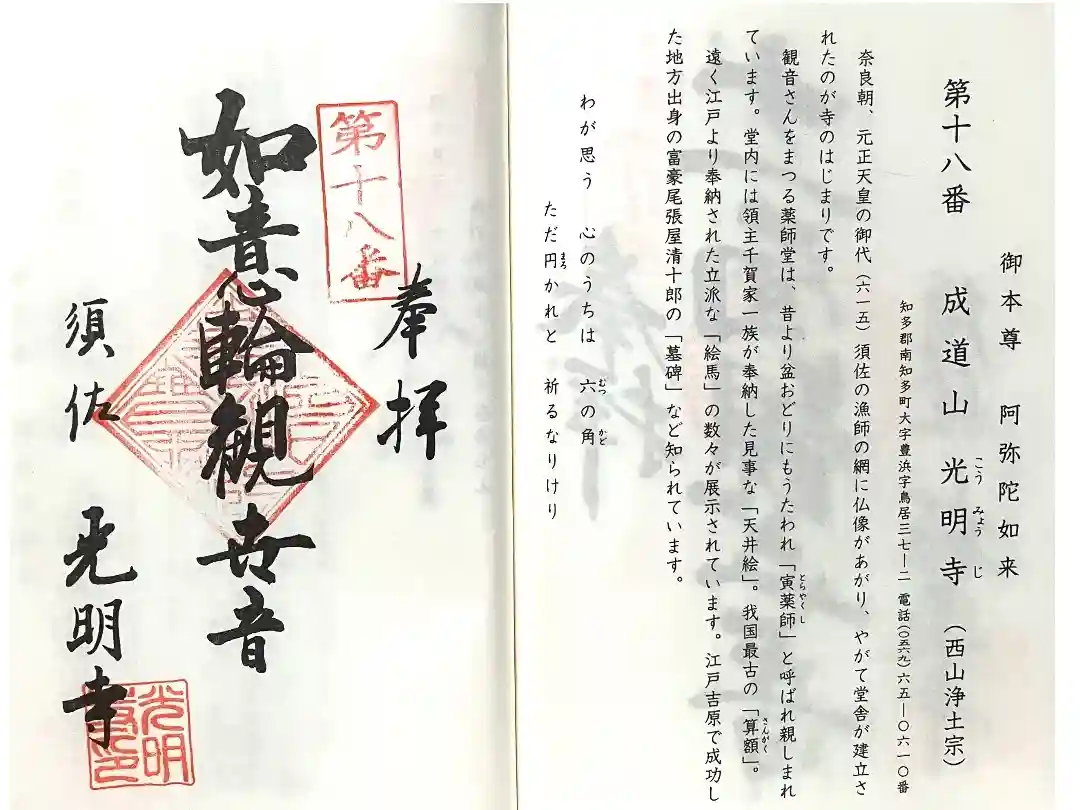 御本尊 阿弥陀如来
第十八番 成道山 光明寺 (西山浄土宗)
こうみょうじ
知多郡南知多町大字豊浜字鳥居三七―二 電話(〇五六九)六五―〇六一〇番
奈良朝、元正天皇の御代(六一五)須佐の漁師の網に仏像があがり、やがて堂舎が建立さ
れたのが寺のはじまりです。
観音さんをまつる薬師堂は、昔より盆おどりにもうたわれ「寅薬師」と呼ばれ親しまれ
とらやくし
ています。堂内には領主千賀家一族が奉納した見事な「天井絵」。我国最古の「算額」。
さんがく
遠く江戸より奉納された立派な「絵馬」の数々が展示されています。江戸吉原で成功し
た地方出身の富豪尾張屋清十郎の「墓碑」など知られています。
わが思う 心のうちは 六の角
むつ かど
ただ円かれと 祈るなりけり
まろ
奉拝
第十八番
如意輪観世音
須佐 光明寺
光明